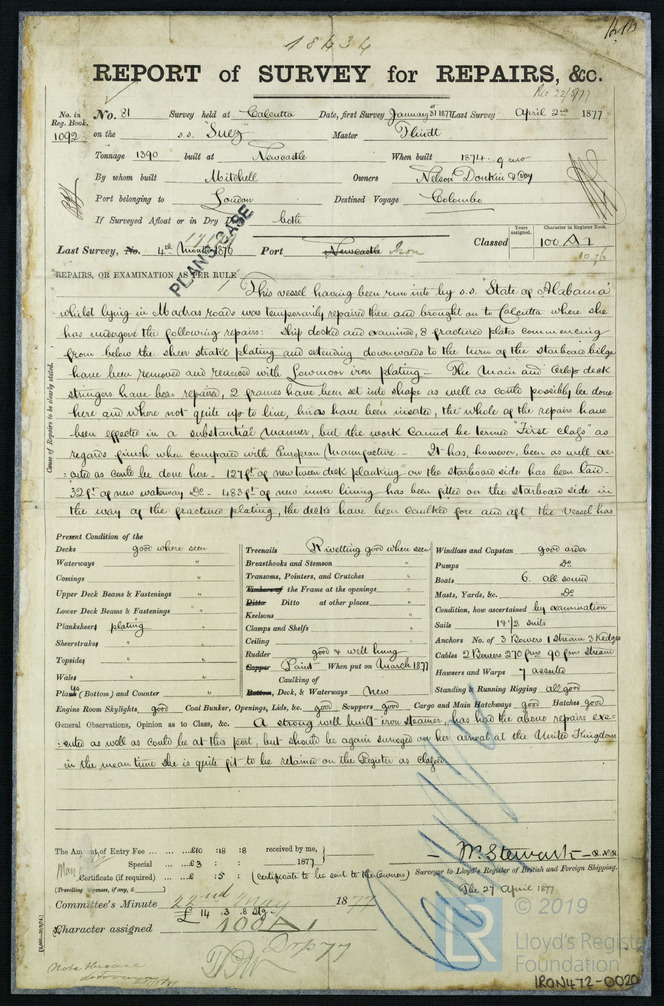 18434
REPORT of SURVEY for REPAIRS, &c.
Rec 22/5/77
No. in Reg. Book. No. 81 Survey held at Calcutta Date, first Survey January 31st 1877 Last Survey April 2nd 1877
1092 on the s.s. "Suez" Master
Tonnage 1390 built at Newcastle When built 1874. 9 mo
By whom built Mitchell Owners Nelson Donkin & Coy
Port belonging to London Destined Voyage Colombo
If Surveyed Afloat or in Dry Dock both
PLANS CASE
Years assigned. Character in Register Book.
Last Survey, No. 4th Month 1876 Port Newcastle Iron Classed 100 A 1
REPAIRS, OR EXAMINATION AS PER RULE
Cause of Repairs to be clearly stated.
This vessel having been run into by s.s. "State of Alabama"
whilst lying in Madras roads was temporarily repaired there and brought on to Calcutta where she
has undergone the following repairs: Ship docked and examined, 8 fractured plates commencing
from below the sheer strake plating and extending downwards to the turn of the starboard bilge
have been removed and renewed with Lowmoor iron plating - The Main and Orlop deck
stringers have been repaired, 2 frames have been set into shape as well as could possibly be done
here and where not quite up to line, liners have been inserted, the whole of the repairs have
been effected in a substantial manner, but the work cannot be termed "First class" as
regards finish when compared with European Manufacture. - It has, however, been as well ex=
=cuted as could be done here - 127 ft of new tween deck planking on the starboard side has been laid -
32 ft of new waterway Do - 483 ft of new inner lining has been fitted on the starboard side in
the way of the fractured plating, the decks have been caulked fore and aft, the vessel has
Present Condition of the
Decks good where seen
Waterways "
Comings "
Upper Deck Beams & Fastenings "
Lower Deck Beams & Fastenings "
Planksheers plating "
Sheerstrakes "
Topsides "
Wales "
Planks (Bottom) and Counter "
Treenails Rivetting good where seen
Breasthooks and Stemson "
Transoms, Pointers, and Crutches "
Timbers of the Frame at the openings "
Ditto Ditto at other places "
Keelsons "
Clamps and Shelfs "
Ceiling "
Rudder good & well hung
Copper Paint When put on March 1877
Caulking of
Bottom, Deck, & Waterways New
Windlass and Capstan good order
Pumps Do
Boats 6. all sound
Masts, Yards, &c. Do
Condition, how ascertained by examination
Sails 1 & 1/2 suits
Anchors No. of 3 Bowers 1 stream 3 Kedges
Cables 2 Bowers 270 fms 90 fms stream
Hawsers and Warps 7 assorted
Standing & Running Rigging all good
Engine Room Skylights good Coal Bunker, Openings, Lids, &c. good Scuppers good Cargo and Main Hatchways good Hatches good
General Observations, Opinion as to Class, &c. A strong well built iron steamer, has had the above repairs exe=
=cuted as well as could be at this port, but should be again surveyed on her arrival at the United Kingdom
in the mean time she is quite fit to be retained on the Register as classed
The Amount of Entry Fee ... £10 : 18 : 8 received by me,
Special ... £3 : : 1877
Certificate (if required) ... £ : 5 : (certificate to be sent to the Owners)
(Travelling expenses, if any, £ )
£ 14 3 8
W. Stewart
Surveyor to Lloyd's Register of British and Foreign Shipping.
The 27 April 1877
Committee's Minute 22nd May 1877
Character assigned 100 A 1
© 2019
LR
Lloyd's Register
Foundation
IRON472-0020